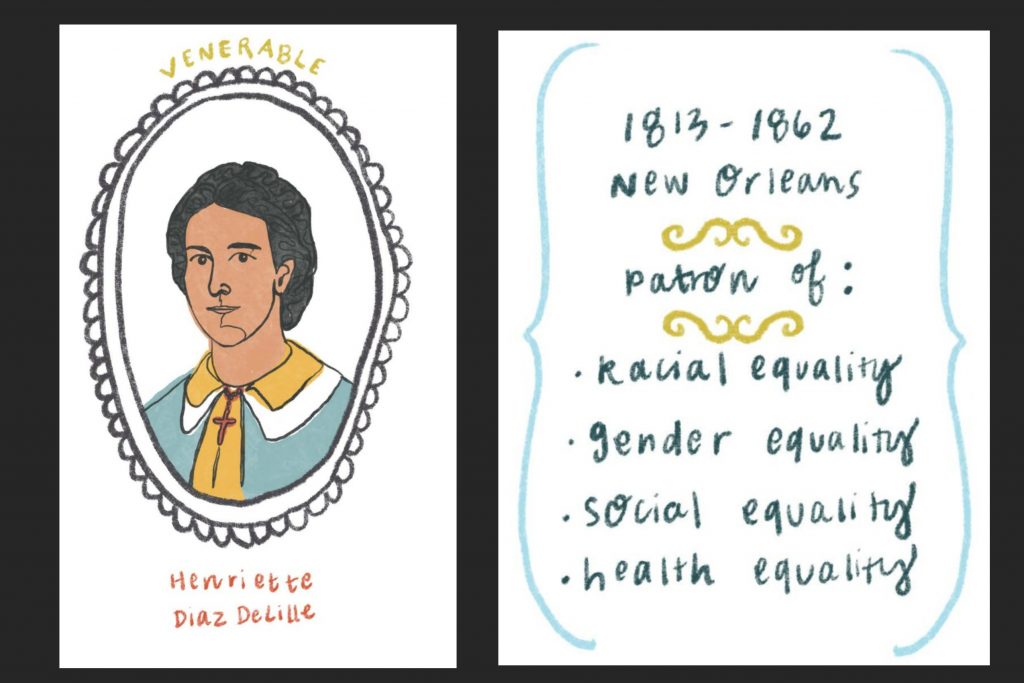 VENERABLE
Henriette
Diaz DeLille
1813-1862
New Orleans
patron of:
• Racial equality
• gender equality
• social equality
• health equality